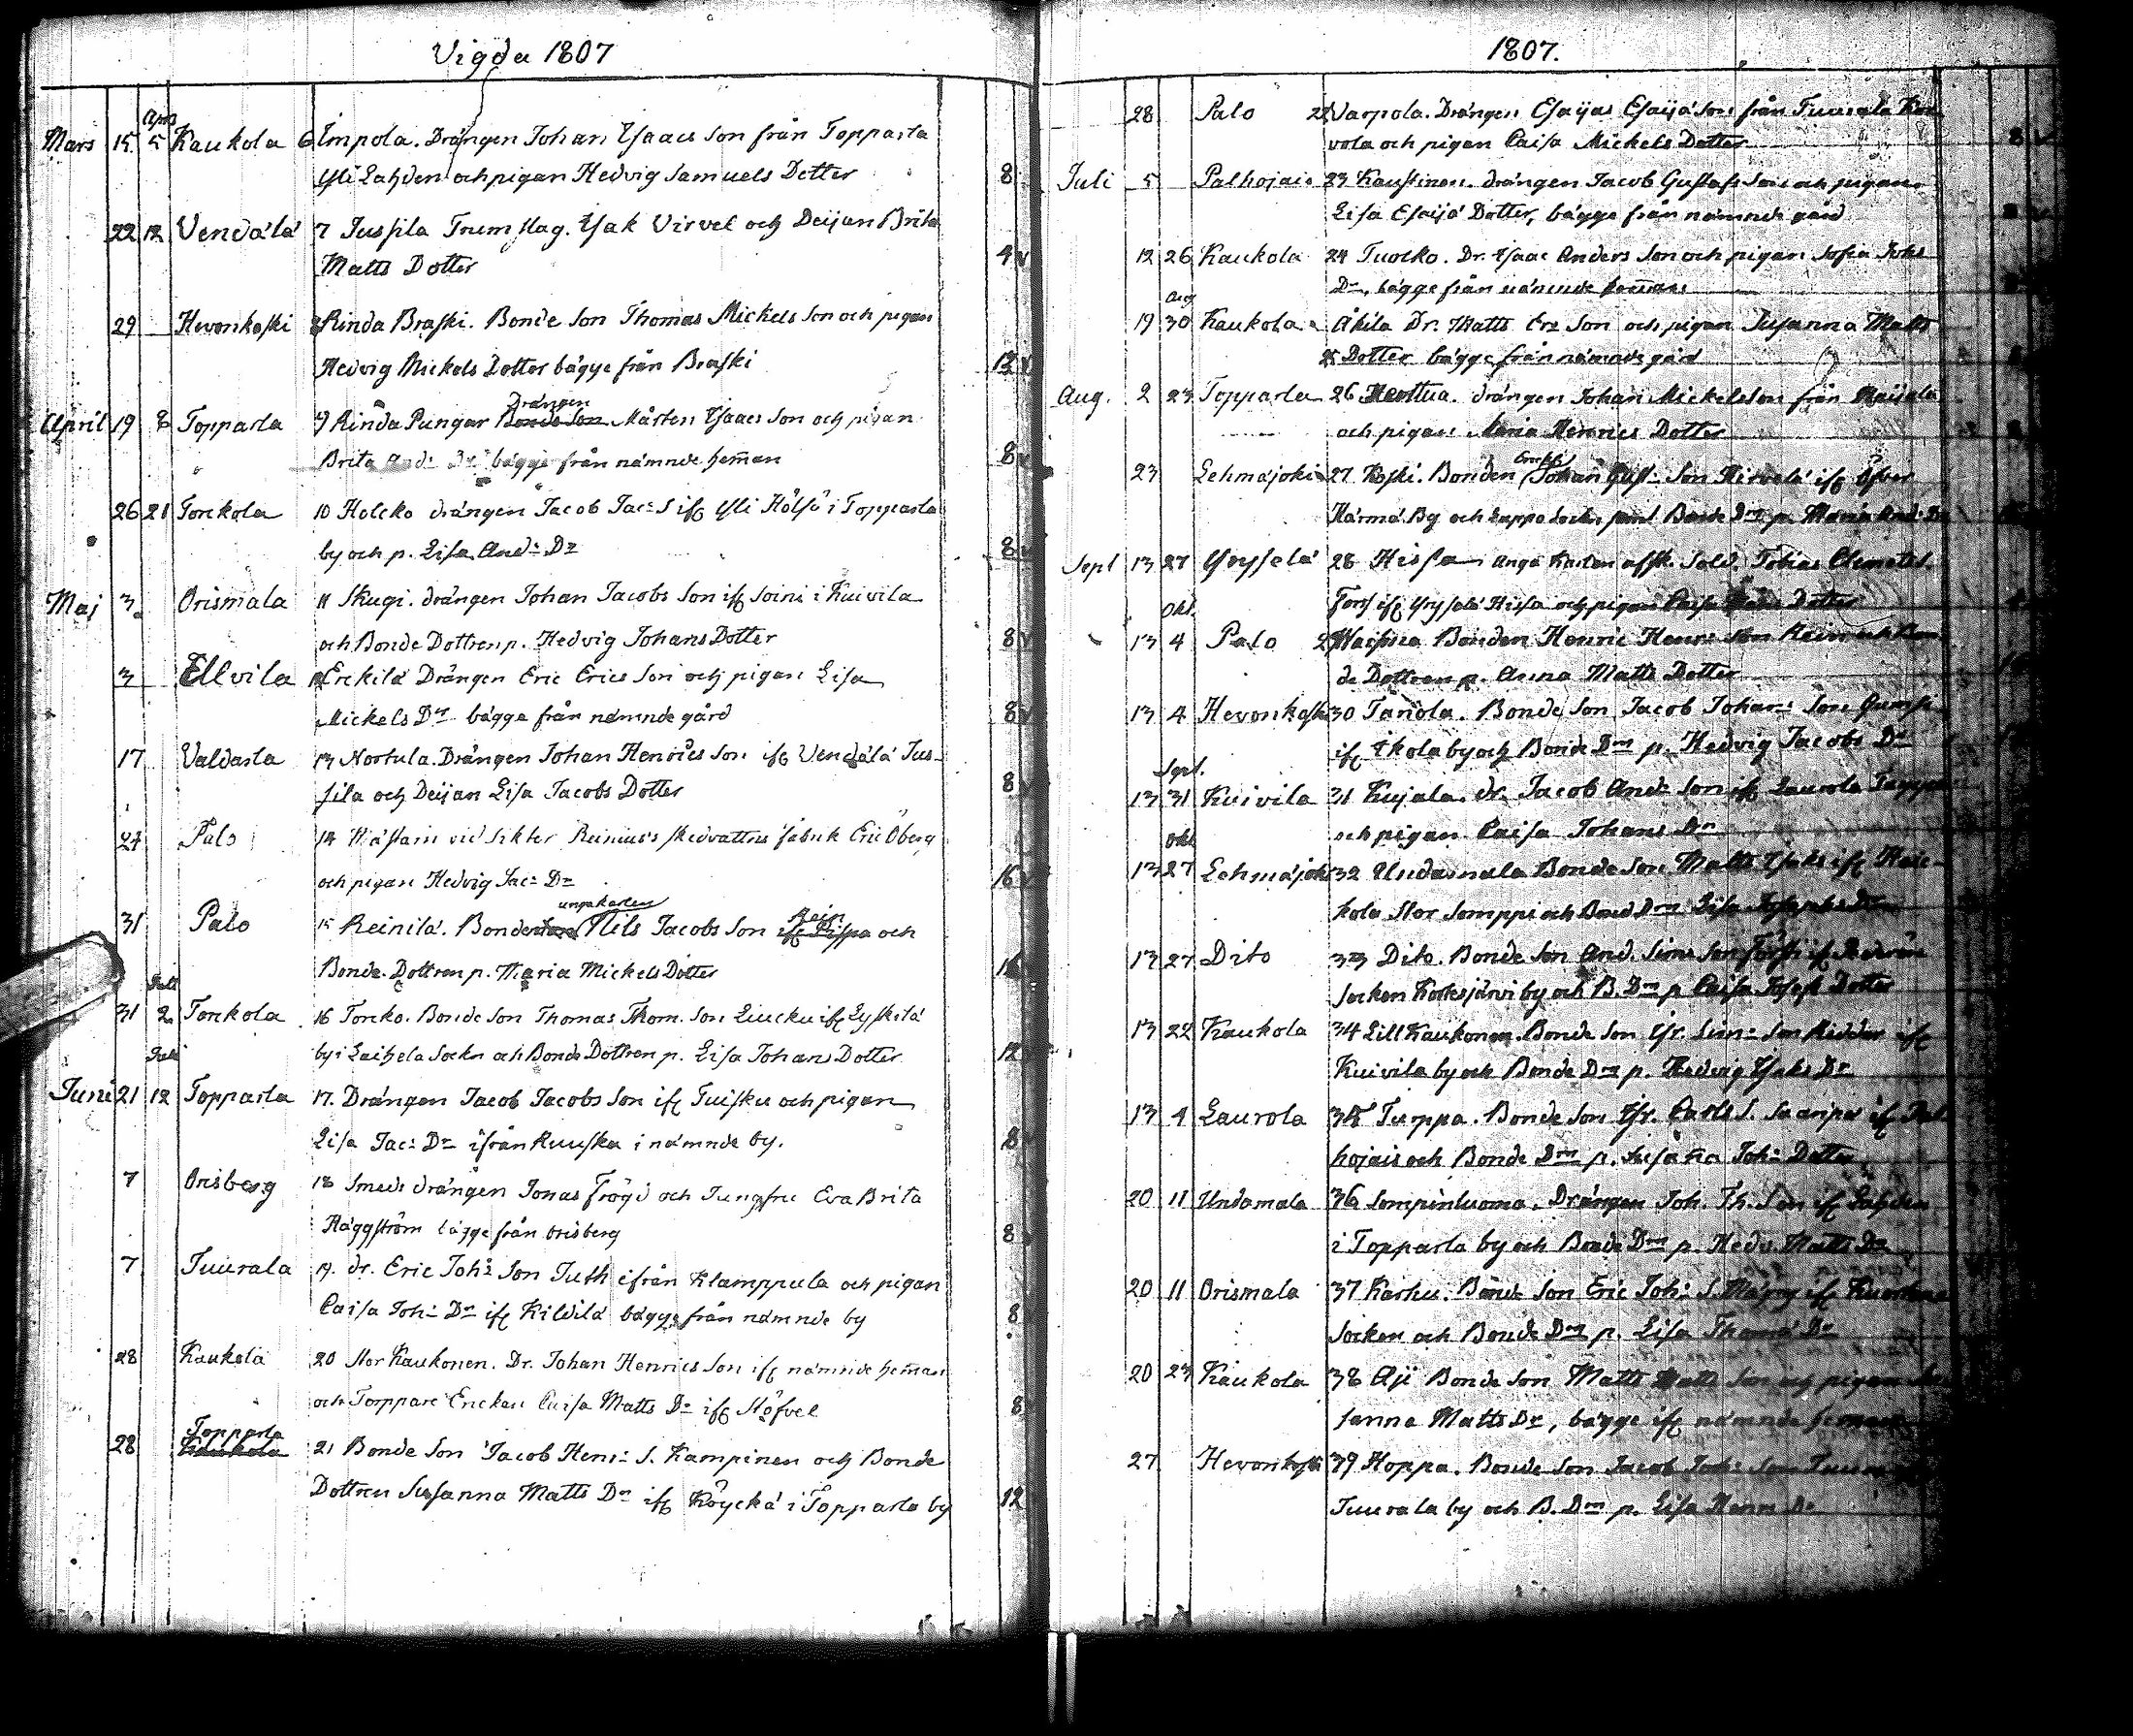 Vigda 1807
Apr
Mars 15 5 Kaukola 6 Impola. Drängen Johan Isaacs Son från Topparla
Yli Lahden och pigan Hedvig Samuels Dotter 8
22 12 Vendälä 7 Jussila Trumslag. Isak Virvel och Deijan Brita
Matts Dotter 4
29 Hevonkoski 8 Rinda Braski. Bonde Son Thomas Mickels Son och pigan
Hedvig Mickels Dotter bägge från Braski 12
Drängen
April 19 Topparla 9 Rinda Pungar Bonde Son Mårten Isaacs Son och pigan
Brita And: Dr bägge från nämnde heman 8
26 21 Tonkola 10 Holcko drängen Jacob Jac: S if Yli Hölsö i Topparla
by och p. Lisa And: Dr 8
Maj 3 Orismala 11 Skugi. drängen Johan Jacobs Son if Soini i Kuivila
och Bonde Dottren p. Hedvig Johans Dotter 8
3 Ellvila 12 Erckilä Drängen Eric Erics Son och pigan Lisa
Mickels Dr bägge från nämnde gård 8
17 Valdarla 13 Nortula. Drängen Johan Henrics Son if Vendälä Jus-
sila och Deijan Lisa Jacobs Dotter 8
24 Palo 14 Mästarn vid Sikter Reinius's skedvattns fabrik Eric Öberg
och pigan Hedvig Jac: Dr 16
ungkarlen Rein
31 Palo 15 Reinilä. Bonden Nils Jacobs Son if och
Bonde Dottren p. Maria Mickels Dotter 16
Juli
31 2 Tonkola 16 Toncko. Bonde Son Thomas Thom. Son Liucku if Lyskilä
by i Laihela Sockn och Bonde Dottren p. Lisa Johans Dotter 12
Juli
Juni 21 12 Topparla 17. Drängen Jacob Jacobs Son if Tuisku och pigan
Lisa Jac: Dr ifrån Ruuska i nämnde by. 8
7 Orisberg 18 Smeds drängen Jonas Frögd och Jungfru Eva Brita
Häggström bägge från Orisberg 8
7 Tuurala 19. dr. Eric Joh: Son Juth ifrån Klamppula och pigan
Caisa Joh: Dr if Kildilä bägge från nämnde by 8
28 Kaukola 20 Stor Kaukonen. Dr. Johan Henrics Son if nämnde heman
och Torppare Enckan Caisa Matts Dr if Stöfvel 8
Topparla
28 Kaukola 21 Bonde Son Jacob Henr: S. Kampinen och Bonde
Dottren Susanna Matts Dr if Köyckä i Topparla by 12
1807.
28 Palo 22 Varpola. Drängen Esaijas Esaijä Son från Tuurala
vola och pigan Caisa Mickels Dotter 8
Juli 5 Palhojais 23 Kaustinen. drängen Jacob Gustafs Son och pigan
Lisa Esaijä Dotter, bägge från nämnde gård
12 26 Kaukola 24 Tuorko. Dr. Isaac Anders Son och pigan Sofia Johs
Dr, bägge från nämnde heman
Aug
19 30 Kaukola Äkila Dr. Matts Ers Son och pigan Susanna Matts
25 Dotter bägge från nämnde gård
Aug. 2 23 Topparla 26 Heottua. drängen Johan Mickelsson från
och pigan Maria Henrics Dotter
23 Lehmäjoki 27 Koski. Bonden Johan Gust: Son Hirvelä if Öfver
Härmä By och Lappo Sockn samt Bonde Drn p. Maria And: Dr
Sept 13 27 Yrysselä 28 Hissa unga Karlen afsk. Sold. Tobias
Fors if Yrysselä Hissa och pigan Caisa Dotter
Okt.
13 4 Palo 29 Bonden Henric Henr: Son Rein och Bon
de Dottren p. Anna Matts Dotter
13 4 Hevonkoski 30 Tanola. Bonde Son Jacob Johan: Son
if Ikola by och Bonde Drn p. Hedvig Jacobs Dr
Sept.
13 31 Kuivila 31 Kujala. dr. Jacob And: Son if Laurola
och pigan Caisa Johans Dr
Okt
13 27 Lehmäjoki 32 Undamala Bonde Son Matts Isaks if
kola Stor Somppi och Bond Drn Lisa Josephs Dr
13 27 Dito 33 Dito. Bonde Son And. Sim: Son
Socken Kortesjärvi by och B. Drn p Caisa Joseph Dotter
13 22 Kaukola 34 Lill Kaukonen. Bonde Son Isr. Sim: Son if
Kuivila by och Bonde Drn p. Hedvig Isaks Dr
13 4 Laurola 35 Turppa. Bonde Son Isr. Carls S. Saaripä if Pal
hojais och Bonde Drn p. Susanna Joh: Dotter
20 11 Undamala 36 Sompinluoma. Drängen Joh. Th. Son if Lahden
i Topparla by och Bonde Drn p. Hedv. Matts Dr
20 11 Orismala 37 Karhu. Bonde Son Eric Joh: S. if
Socken och Bonde Drn p. Lisa Thomä Dr
20 23 Kaukola 38 Äji Bonde Son Matts Matts Son och pigan Su
sanna Matts Dr, bägge if nämnde heman
27 Hevonkoski 39 Hoppa. Bonde Son Jacob Joh: Son
Tuurala by och B. Drn p. Lisa Henr: Dr